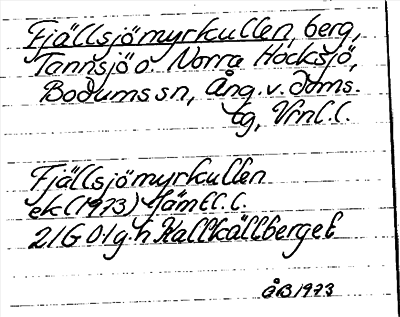 Fjällsjömyrkullen, berg,
Tannsjö o. Norra Hocksjö,
Bodums sn, Ång. v. doms.
tg, Vrnl. l.
Fjällsjömyrkullen
ek (1973) Jämtl. l.
21G 0/g-h Kallkällberget
ÅB 1973